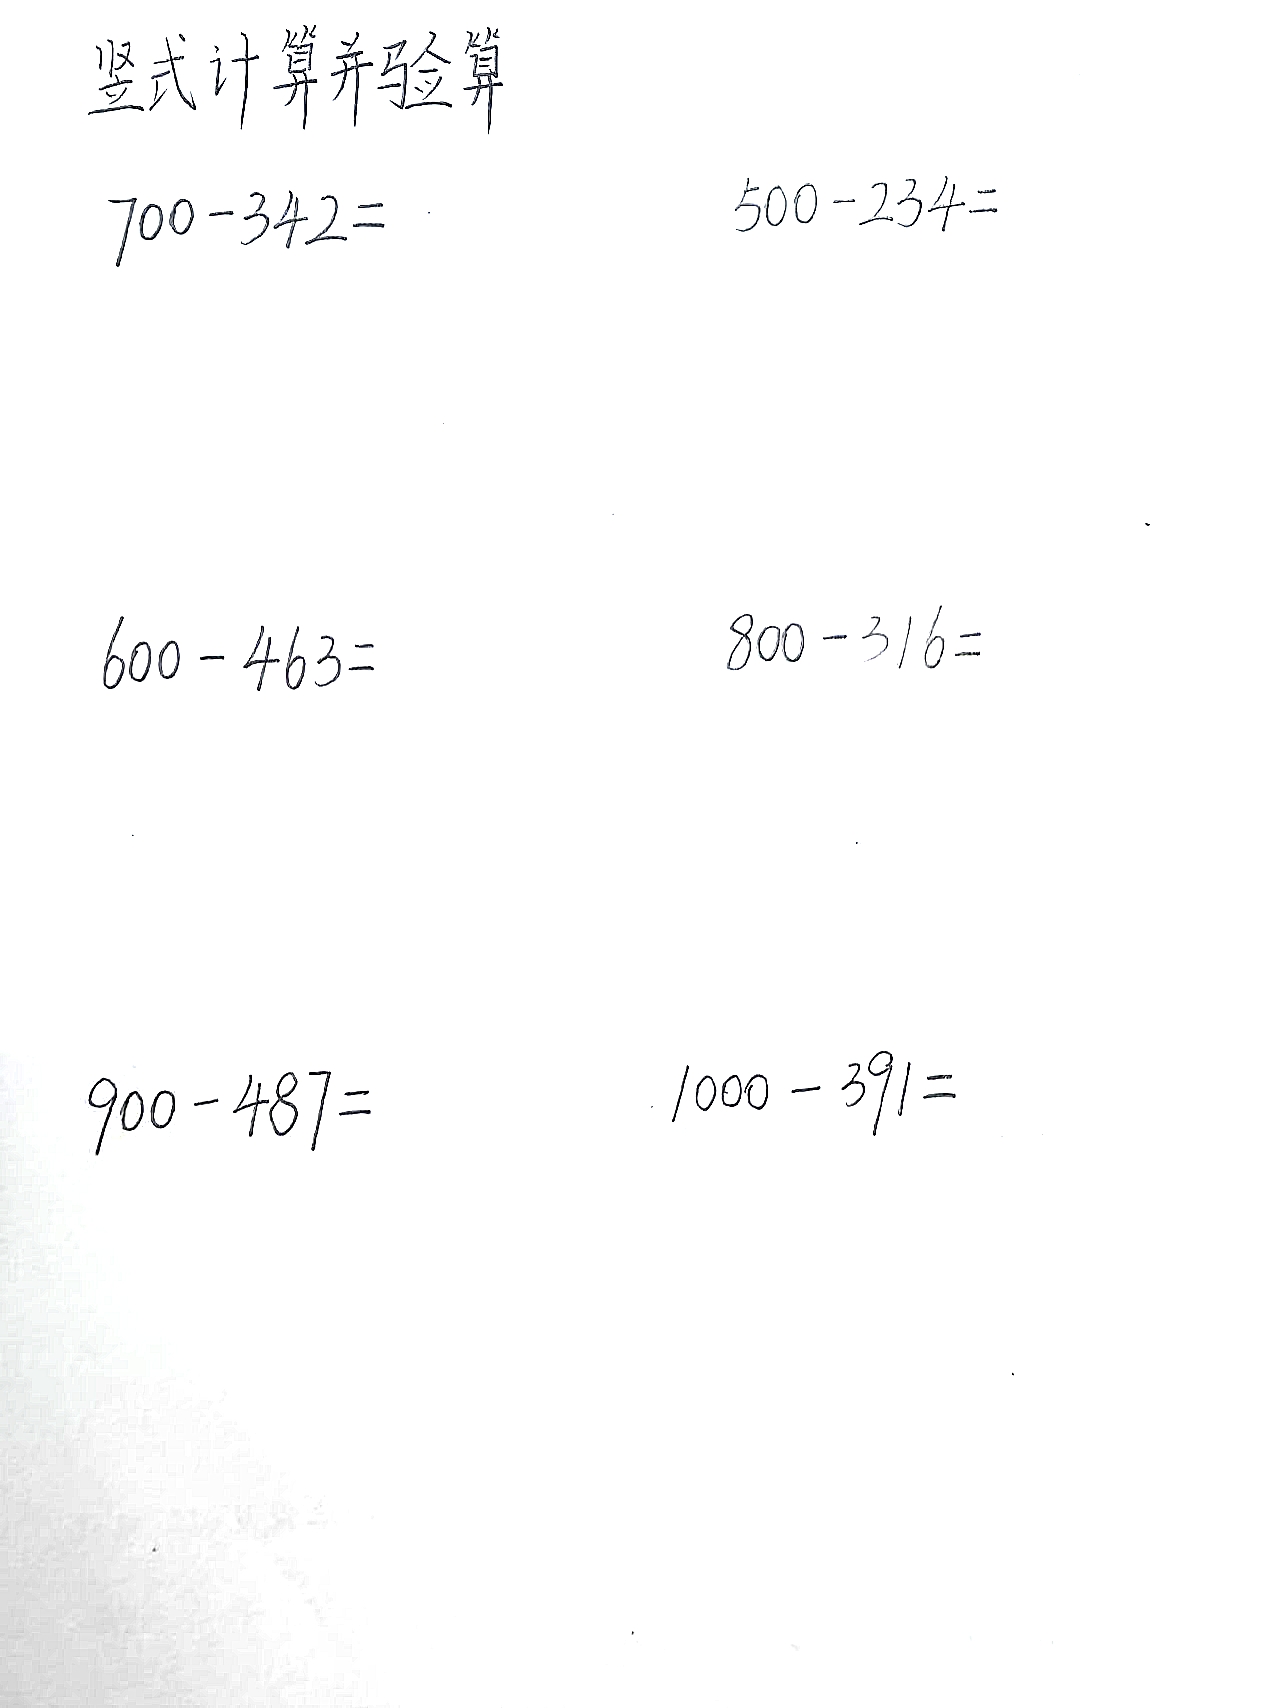 竖式计算并验算
700-342=
500-234=
600-463=
800-316=
900-487=
1000-391=